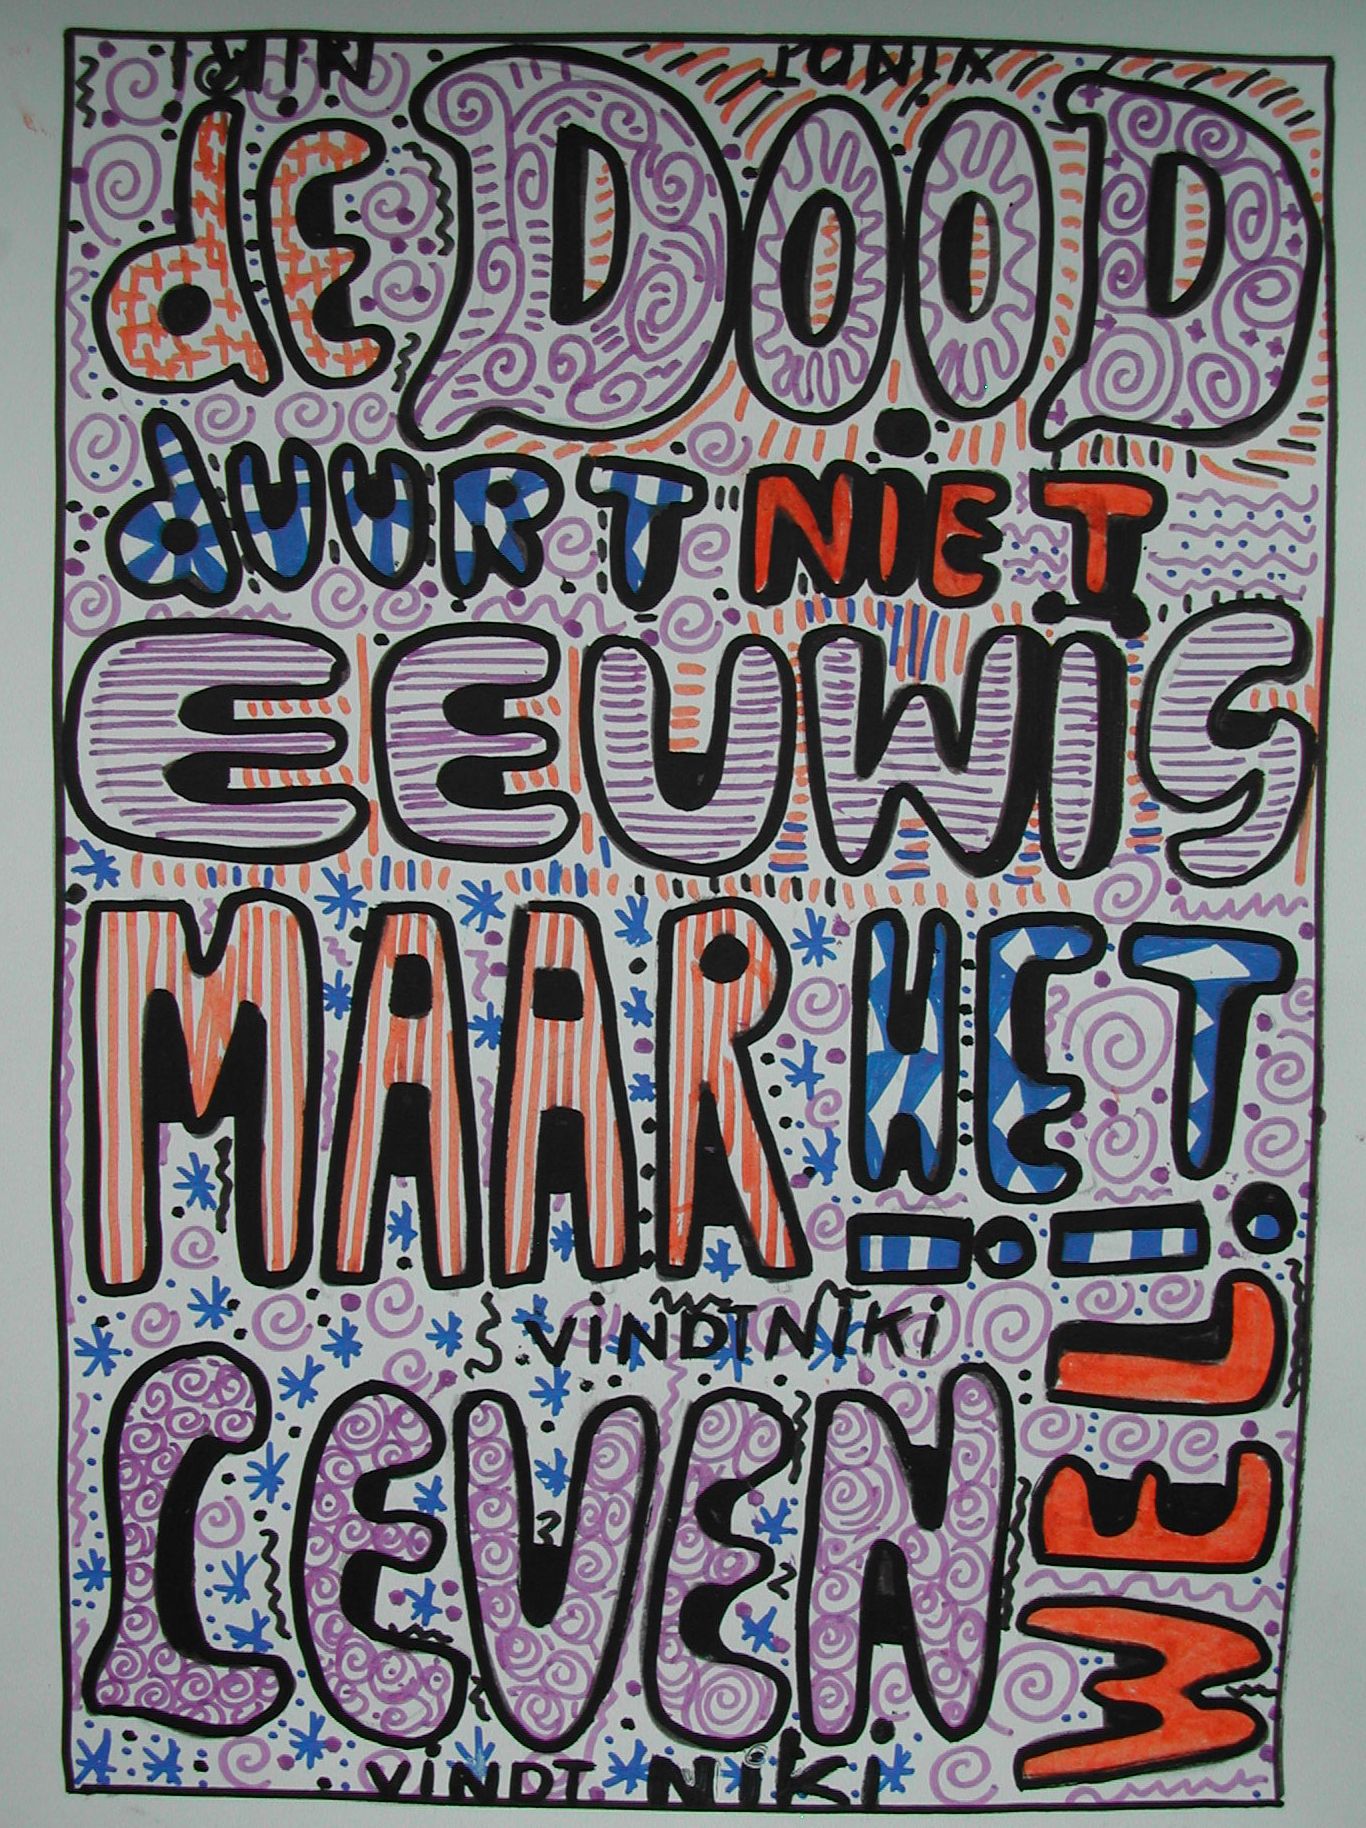 de DOOD
duurt NIET
EEUWIG
MAAR HET
VINDT NIKI
LEVEN WEL!
VINDT NIKI